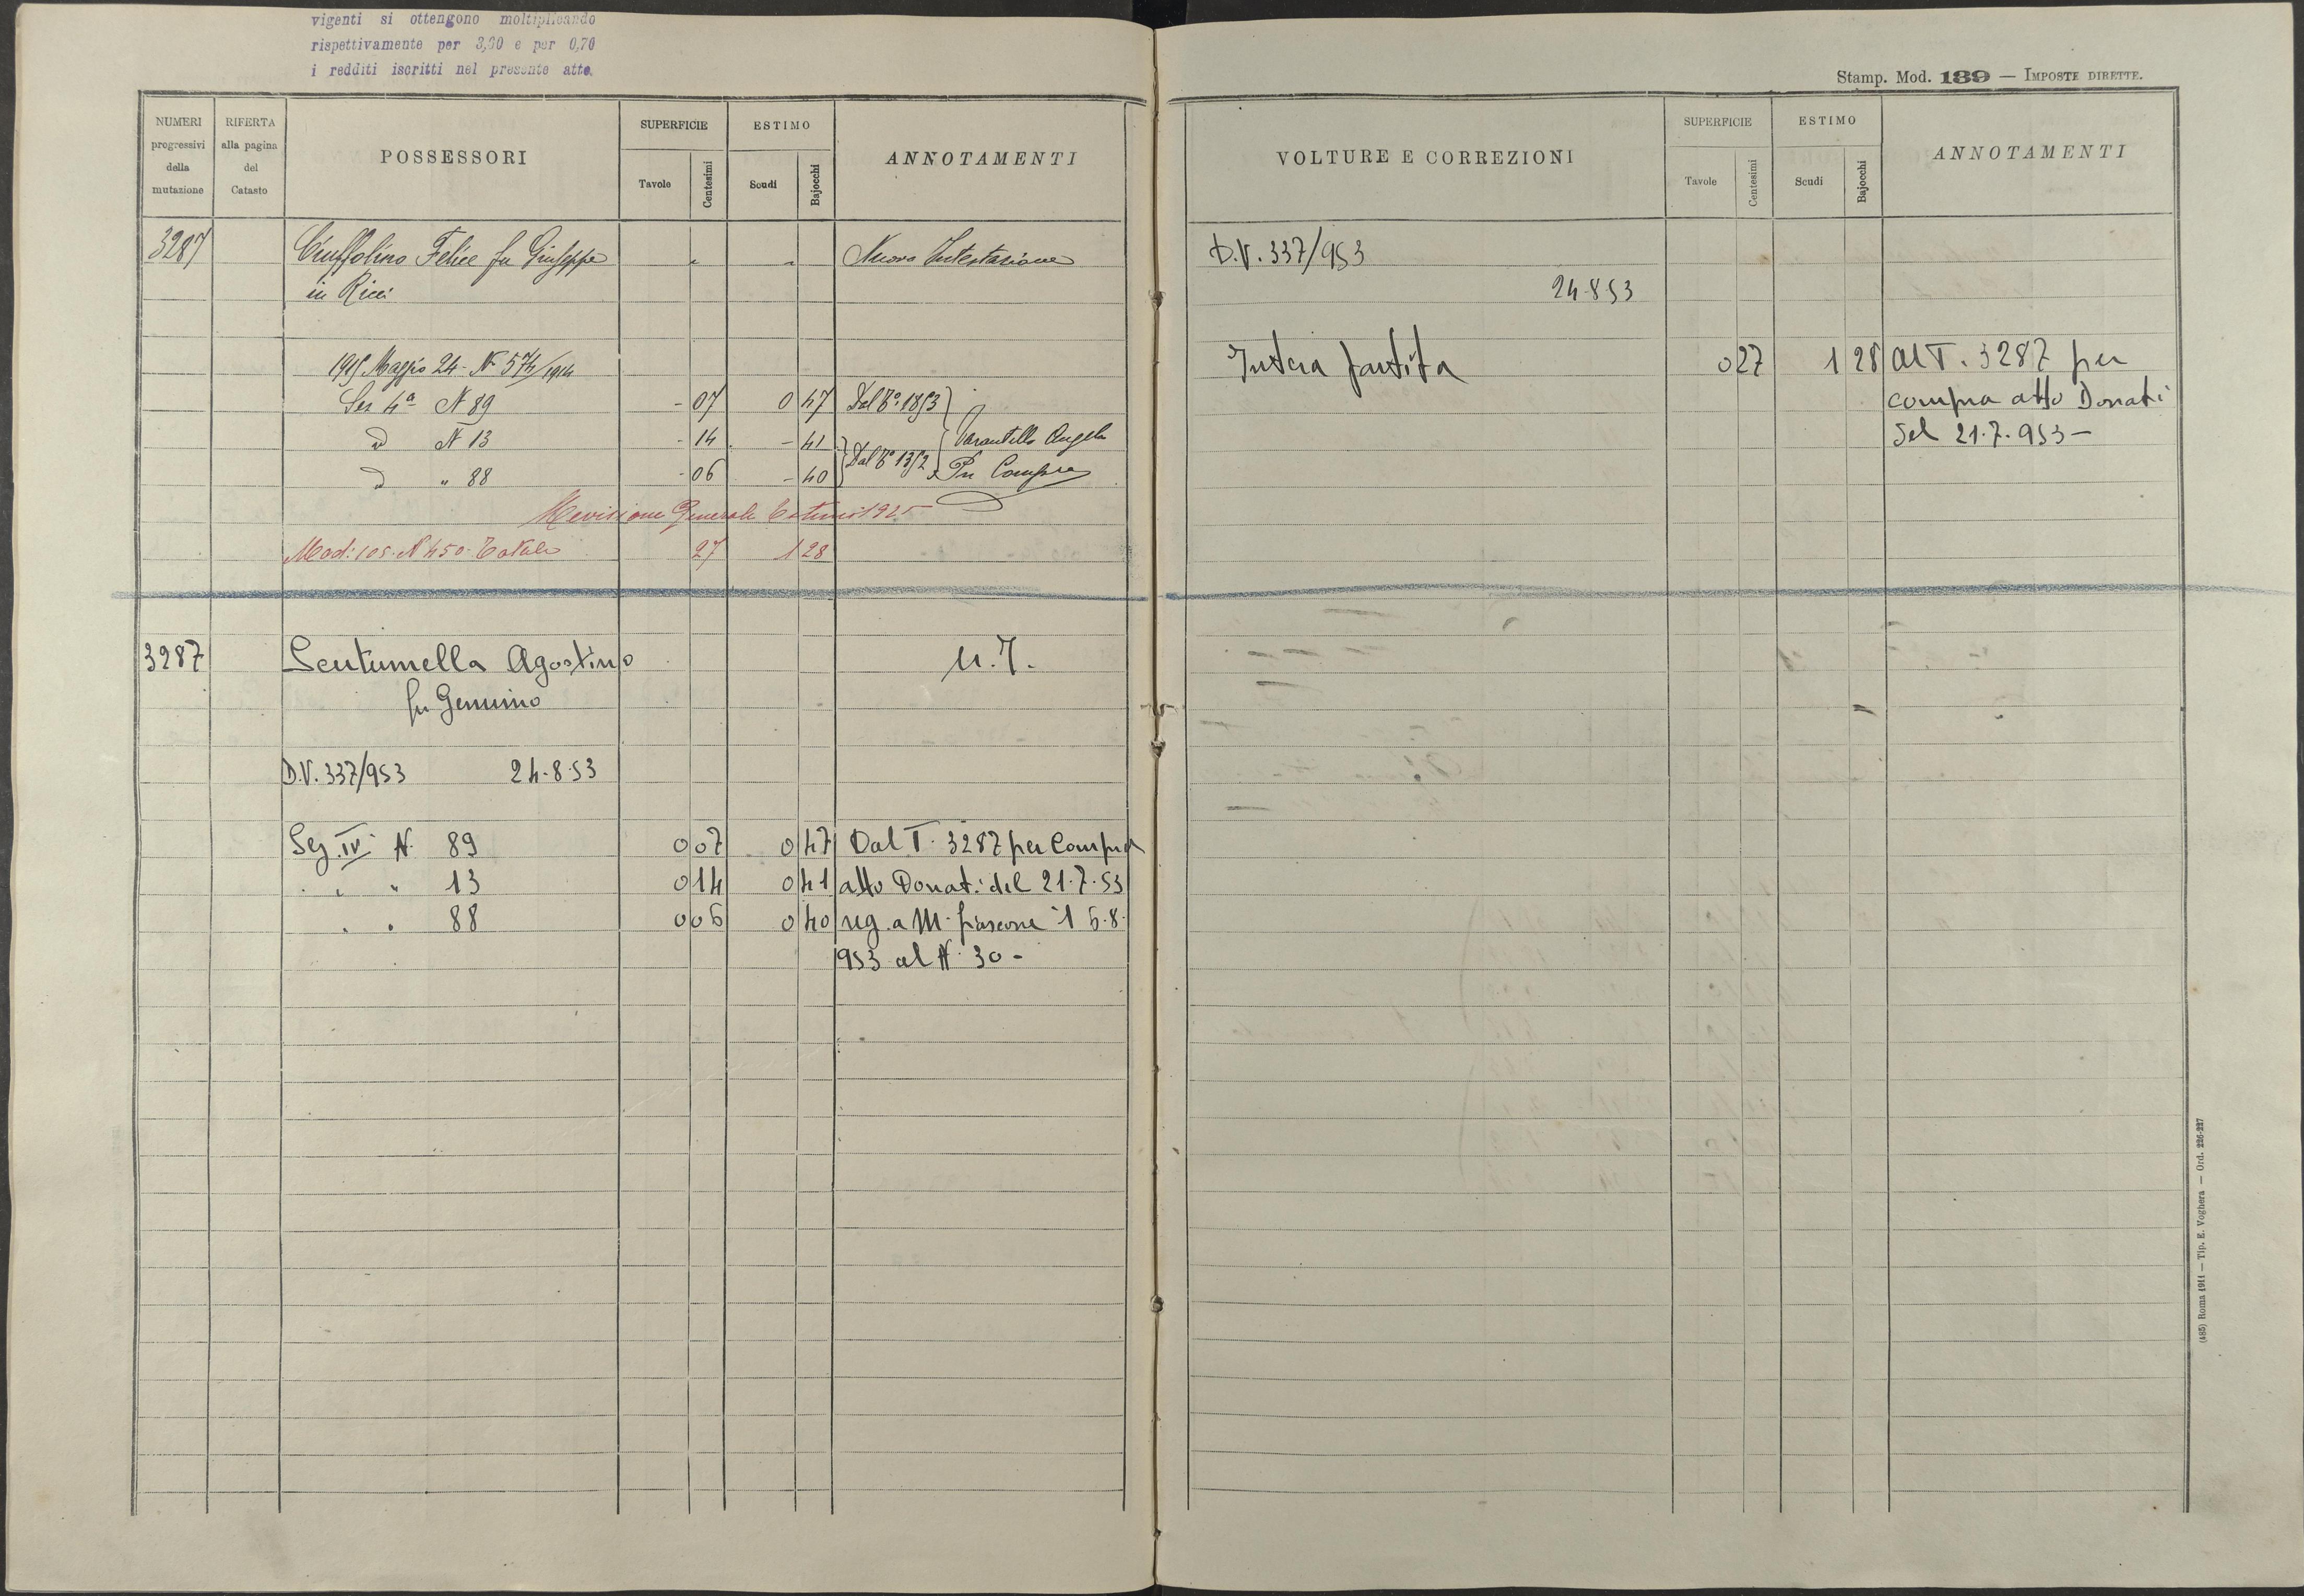 vigenti si ottengono moltiplicando
rispettivamente per 3,00 e per 0,70
i redditi iscritti nel presente atto.
NUMERI progressivi della mutazione
RIFERTA alla pagina del Catasto
POSSESSORI
SUPERFICIE
Tavole Centesimi
ESTIMO
Scudi Bajocchi
ANNOTAMENTI
3287 Ciuffolino Felice fu Giuseppe " " Nuova Intestazione
in Ricci
1915 Maggio 24 - N 574/1914
Sez 4a N 89 - 07 0 47 Dal To 1853
D N 13 - 14 - 41 Angelo
D " 88 - 06 - 40 Dal To 1352 Per Compra
Revisione Generale Estimi 1925
Mod: 105. N 450. Totale 27 1 28
3287 Sentumella Agostino N. I.
fu Genuino
D.V. 337/953 24-8-53
Sez. IV N. 89 0 07 0 47 Dal T. 3287 per Compra
" " 13 0 14 0 41 atto Donati del 21.7.53
" " 88 0 06 0 40 reg. a M. fiascone il 6.8.
953 al N. 30 -
Stamp. Mod. 139 — IMPOSTE DIRETTE.
VOLTURE E CORREZIONI
SUPERFICIE
Tavole Centesimi
ESTIMO
Scudi Bajocchi
ANNOTAMENTI
D.V. 337/953
24-8-53
Intera partita 0 27 1 28 Al T. 3287 per
compra atto Donati
del 21.7.953 -
(485) Roma 1911 — Tip. E. Voghera — Ord. 226-227